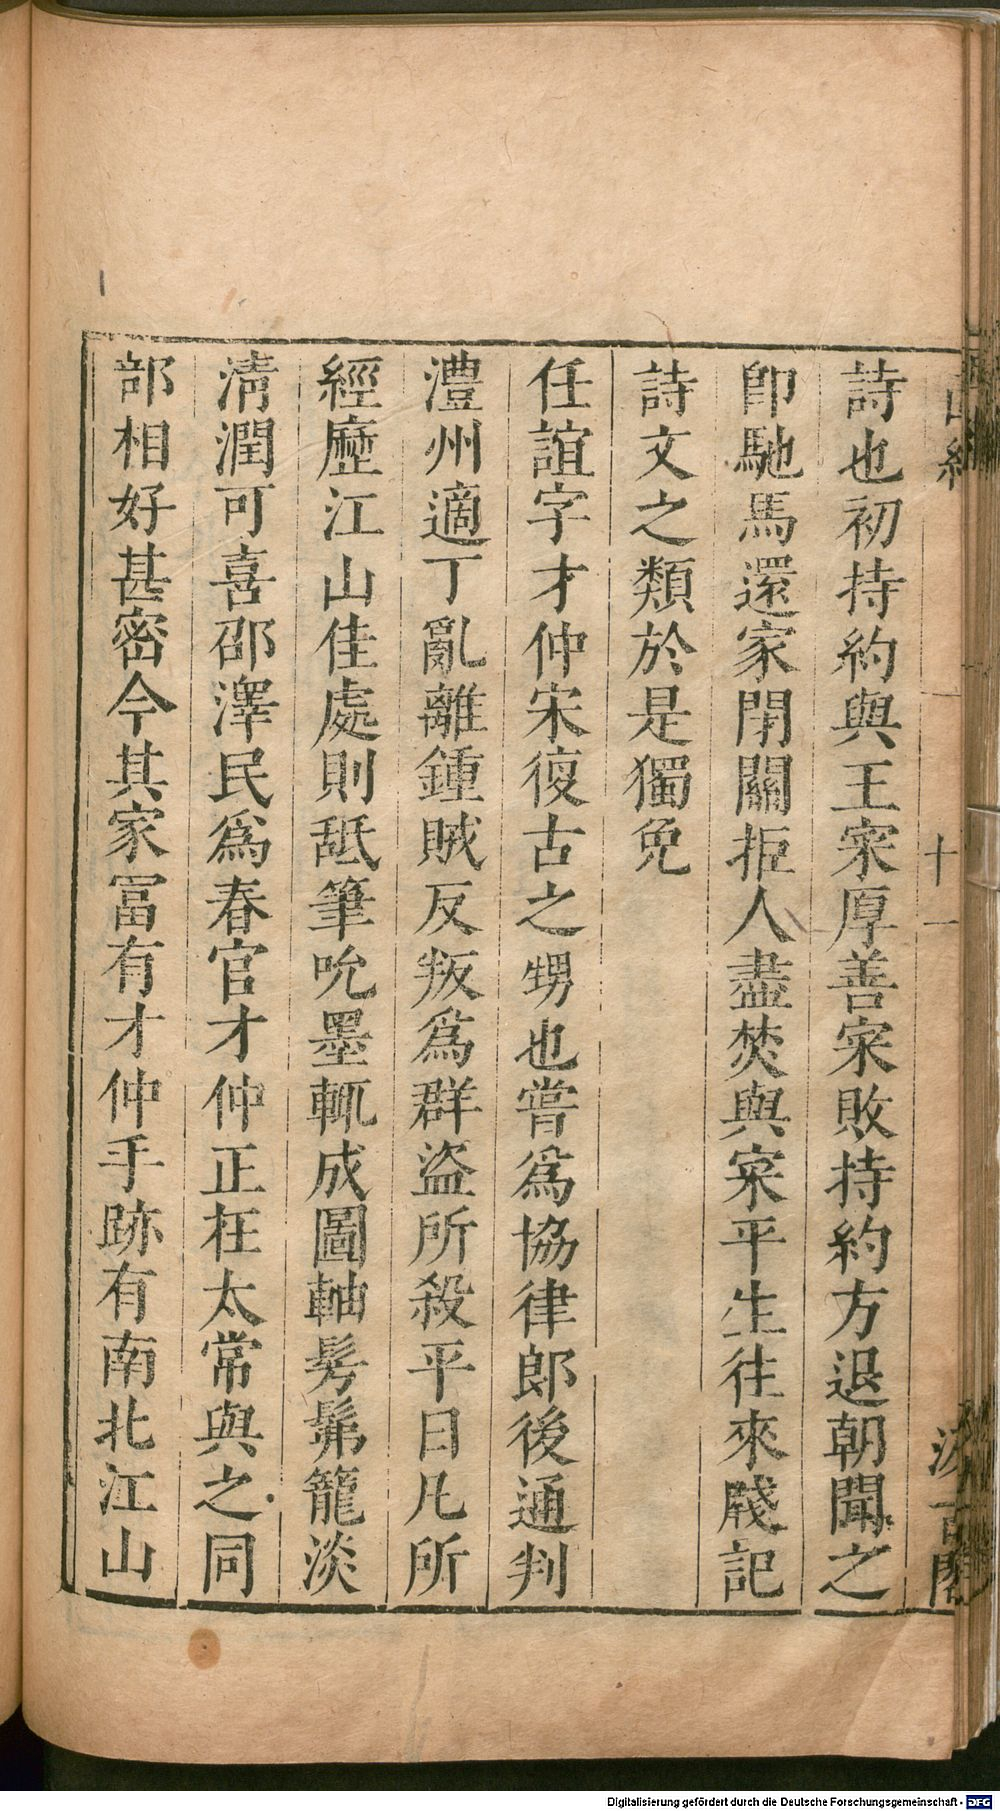 十一
詩也初持約與王宷厚善宷敗持約方退朝聞之
卽馳馬還家閉關拒人盡焚與宷平生往來牋記
詩文之類於是獨免
任誼字才仲宋復古之甥也嘗爲協律郎後通判
澧州適丁亂離鍾賊反叛爲群盜所殺平日凡所
經歷江山佳處則舐筆吮墨輒成圖軸髣髴籠淡
淸潤可喜邵澤民爲春官才仲正在太常與之同
部相好甚密今其家冨有才仲手跡有南北江山
Digitalisierung gefördert durch die Deutsche Forschungsgemeinschaft - DFG